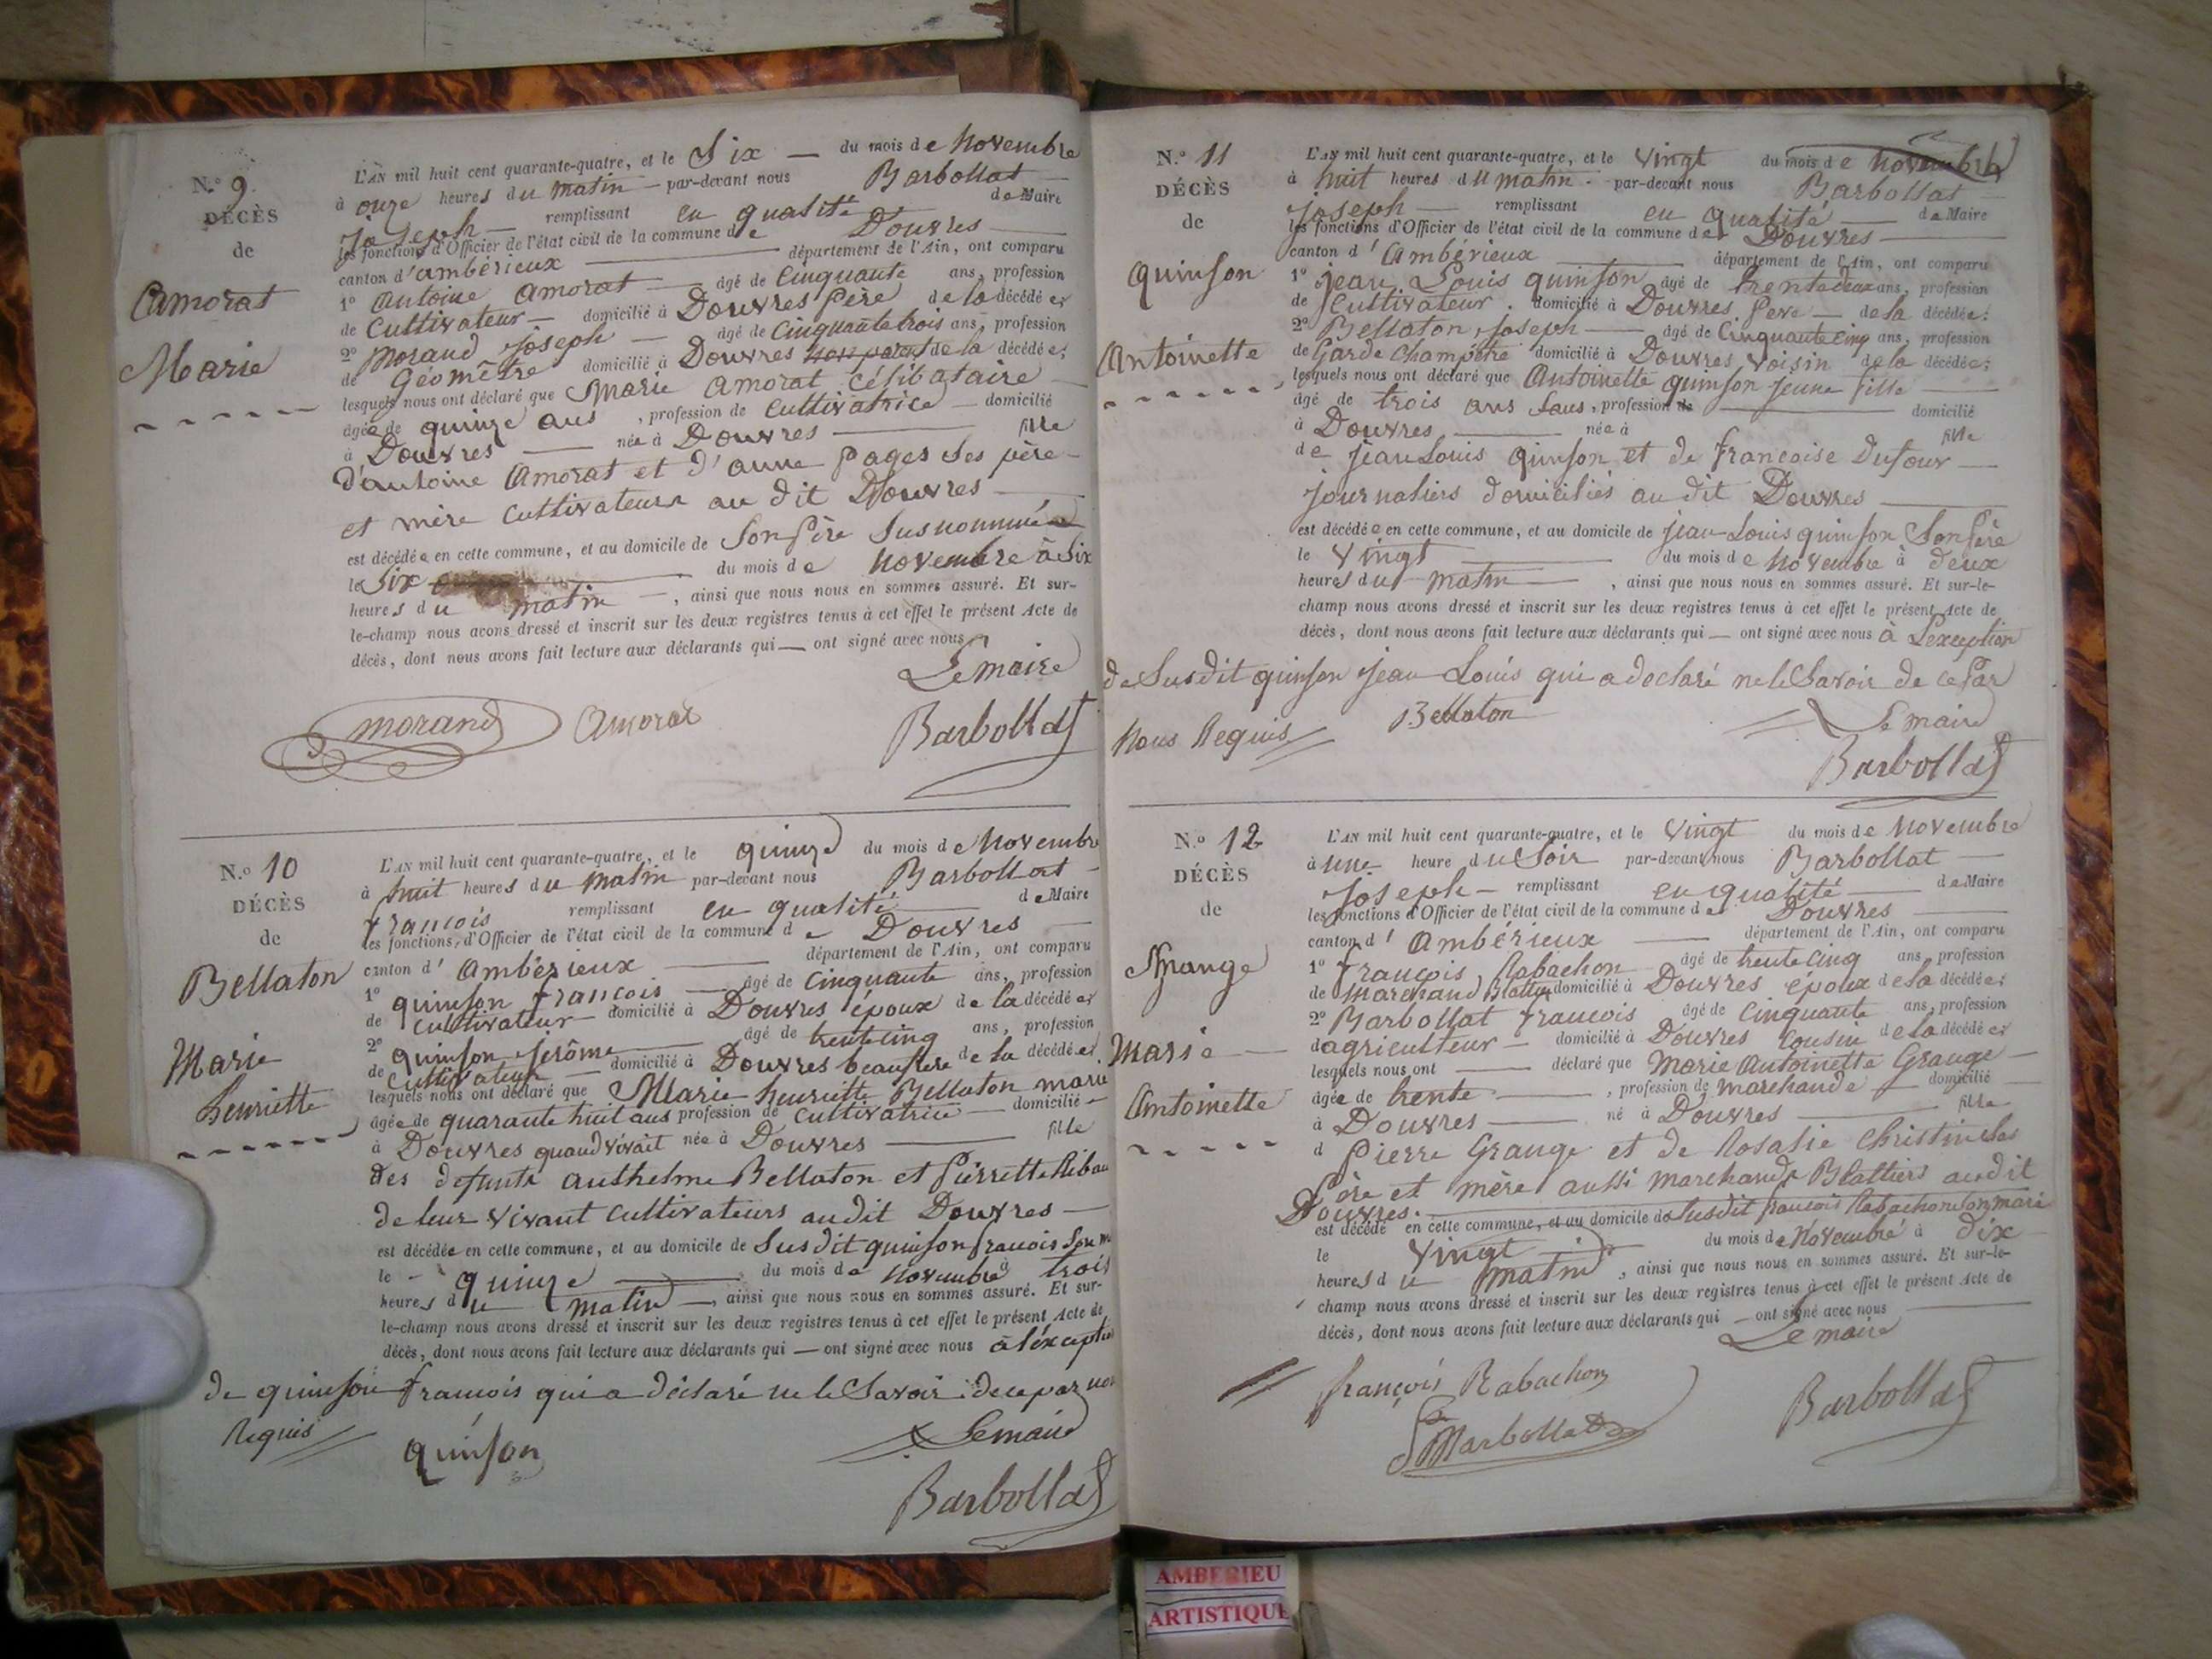 N.º 9
DÉCÈS
de
Amorat
Marie
L'AN mil huit cent quarante-quatre, et le Six du mois de Novembre
à onze heures du matin par-devant nous Barbollat
Joseph remplissant en qualité de Maire
les fonctions d'Officier de l'état civil de la commune de Douvres
canton d'ambérieux département de l'Ain, ont comparu
1º Antoine Amorat âgé de Cinquante ans, profession
de Cultivateur domicilié à Douvres Père de la décédée;
2º Morand Joseph âgé de Cinquante trois ans, profession
de Géomêtre domicilié à Douvres non parent de la décédée;
lesquels nous ont déclaré que Marie Amorat Célibataire
âgée de quinze ans, profession de Cultivatrice domicilié
à Douvres née à Douvres fille
d'antoine Amorat et d'anne Pages Ses père
et mère Cultivateurs au dit Douvres
est décédée en cette commune, et au domicile de Son Père Susnommé
le Six du mois de Novembre à Six
heures du matin, ainsi que nous nous en sommes assuré. Et sur-
le-champ nous avons dressé et inscrit sur les deux registres tenus à cet effet le présent Acte de
décès, dont nous avons fait lecture aux déclarants qui ont signé avec nous
Le maire
Morand Amorat Barbollat
N.º 10
DÉCÈS
de
Bellaton
Marie
henriette
L'AN mil huit cent quarante-quatre, et le quinze du mois de Novembre
à huit heures du matin par-devant nous Barbollat
francois remplissant en qualité de Maire
les fonctions d'Officier de l'état civil de la commune de Douvres
canton d'Ambérieux département de l'Ain, ont comparu
1º quinson francois âgé de Cinquante ans, profession
de Cultivateur domicilié à Douvres époux de la décédée;
2º quinson Jerôme âgé de trente cinq ans, profession
de Cultivateur domicilié à Douvres beaufrere de la décédée;
lesquels nous ont déclaré que Marie henriette Bellaton
âgée de quarante huit ans profession de Cultivatrice domicilié
à Douvres quand vivait née à Douvres fille
des defunts Anthelme Bellaton et Pierrette
de leur vivant Cultivateurs audit Douvres
est décédée en cette commune, et au domicile de Susdit quinson francois
le quinze du mois de Novembre à trois
heures du matin, ainsi que nous nous en sommes assuré. Et sur-
le-champ nous avons dressé et inscrit sur les deux registres tenus à cet effet le présent Acte de
décès, dont nous avons fait lecture aux déclarants qui ont signé avec nous à léxception
de quinson francois qui a déclaré ne le Savoir de ce par nous
Requis
Le maire
quinson
Barbollat
N.º 11
DÉCÈS
de
quinson
Antoinette
L'AN mil huit cent quarante-quatre, et le Vingt du mois de Novembre
à huit heures du matin par-devant nous Barbollat
Joseph remplissant en qualité de Maire
les fonctions d'Officier de l'état civil de la commune de Douvres
canton d'Ambérieux département de l'Ain, ont comparu
1º Jean Louis quinson âgé de trente deux ans, profession
de Cultivateur. domicilié à Douvres Pere de la décédée;
2º Bellaton Joseph âgé de Cinquante cinq ans, profession
de Garde Champêtre domicilié à Douvres Voisin de la décédée;
lesquels nous ont déclaré que Antoinette quinson jeune fille
âgé de trois ans Sans, profession de domicilié
à Douvres née à fille
de Jean Louis quinson et de francoise Dufour
Journaliers domiciliés au dit Douvres
est décédée en cette commune, et au domicile de Jean-Louis quinson Son Père
le Vingt du mois de Novembre à deux
heures du matin, ainsi que nous nous en sommes assuré. Et sur-le-
champ nous avons dressé et inscrit sur les deux registres tenus à cet effet le présent Acte de
décès, dont nous avons fait lecture aux déclarants qui ont signé avec nous à L'exception
de Susdit quinson Jean Louis qui a déclaré ne le Savoir de ce Par
Nous Requis Bellaton Le maire
Barbollat
N.º 12
DÉCÈS
de
Grange
Marie
Antoinette
L'AN mil huit cent quarante-quatre, et le Vingt du mois de Novembre
à une heure du Soir par-devant nous Barbollat
Joseph remplissant en qualité de Maire
les fonctions d'Officier de l'état civil de la commune de Douvres
canton d'Ambérieux département de l'Ain, ont comparu
1º francois Rabachon âgé de trente cinq ans, profession
de Marchand Blattier domicilié à Douvres époux de la décédée;
2º Barbollat francois âgé de Cinquante ans, profession
d'agriculteur domicilié à Douvres Cousin de la décédée
lesquels nous ont déclaré que Marie Antoinette Grange
âgée de trente, profession de Marchande domicilié
à Douvres né à Douvres fille
d Pierre Grange et de Rosalie Christin Ses
Père et mère aussi Marchands Blattiers audit
Douvres.
est décédé en cette commune, et au domicile de Susdit francois Rabachon Son mari
le Vingt du mois de Novembre à dix
heures du matin, ainsi que nous nous en sommes assuré. Et sur-le-
champ nous avons dressé et inscrit sur les deux registres tenus à cet effet le présent Acte de
décès, dont nous avons fait lecture aux déclarants qui ont signé avec nous
Le maire
françois Rabachon
Barbollat
Barbollat
AMBERIEU
ARTISTIQUE